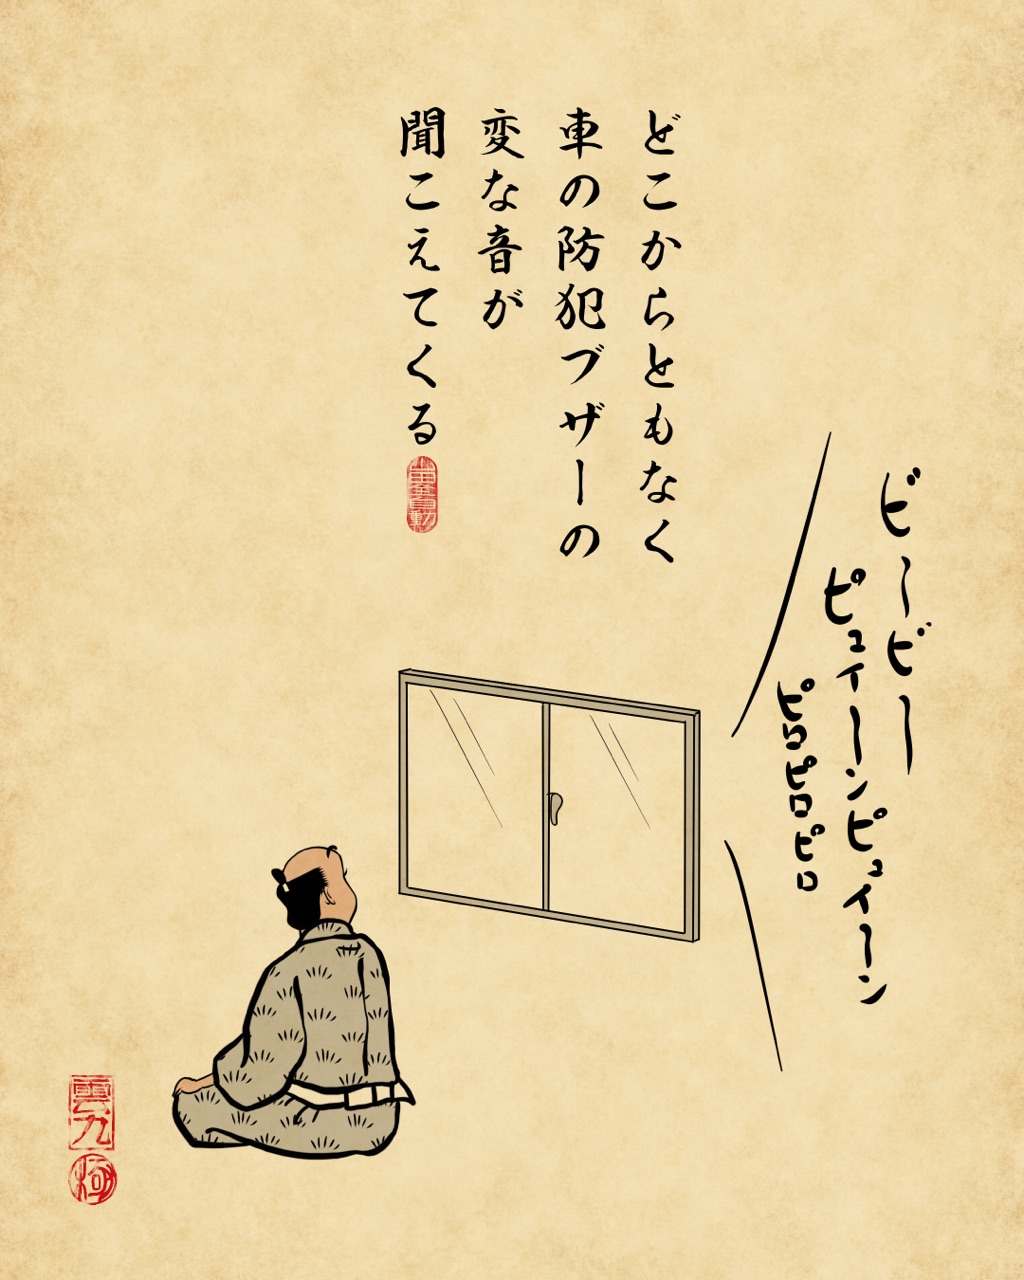 どこからともなく
車の防犯ブザーの
変な音が
聞こえてくる
ビービー
ピュイーンピュイーン
ピロピロピロ
雲九